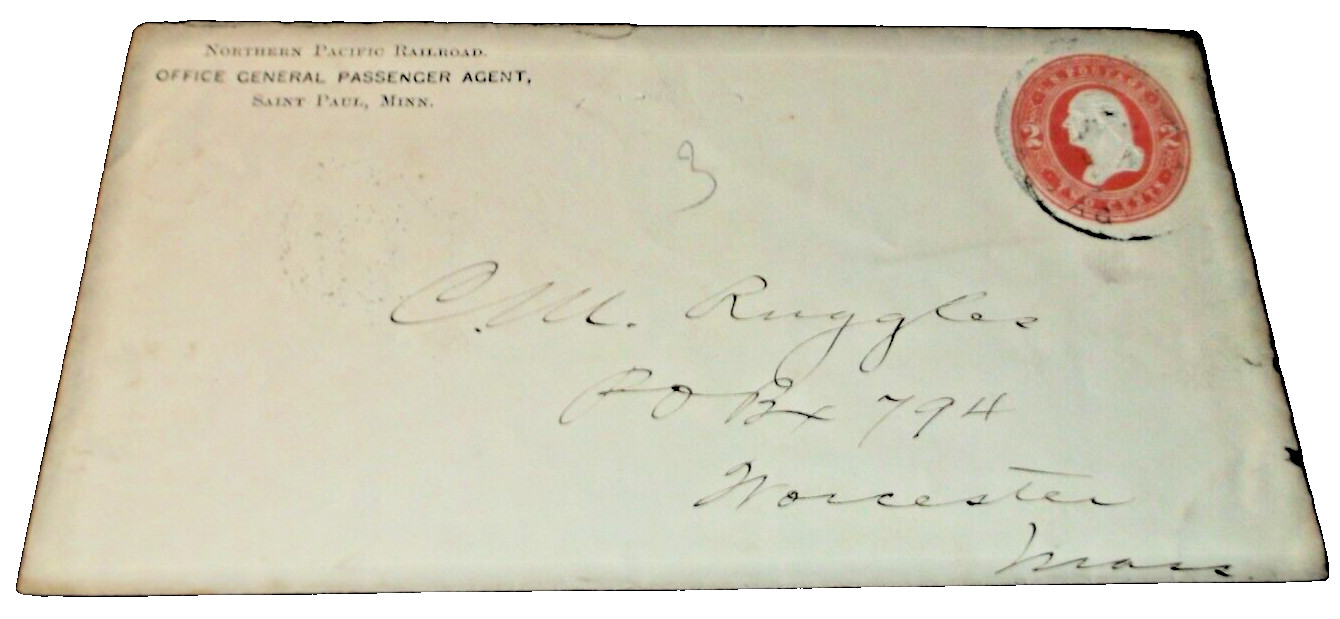 NORTHERN PACIFIC RAILROAD.
OFFICE GENERAL PASSENGER AGENT,
SAINT PAUL, MINN.
U.S. POSTAGE
2 2
TWO CENTS
3
C. M. Ruggles
P O Bx 794
Worcester
Mass